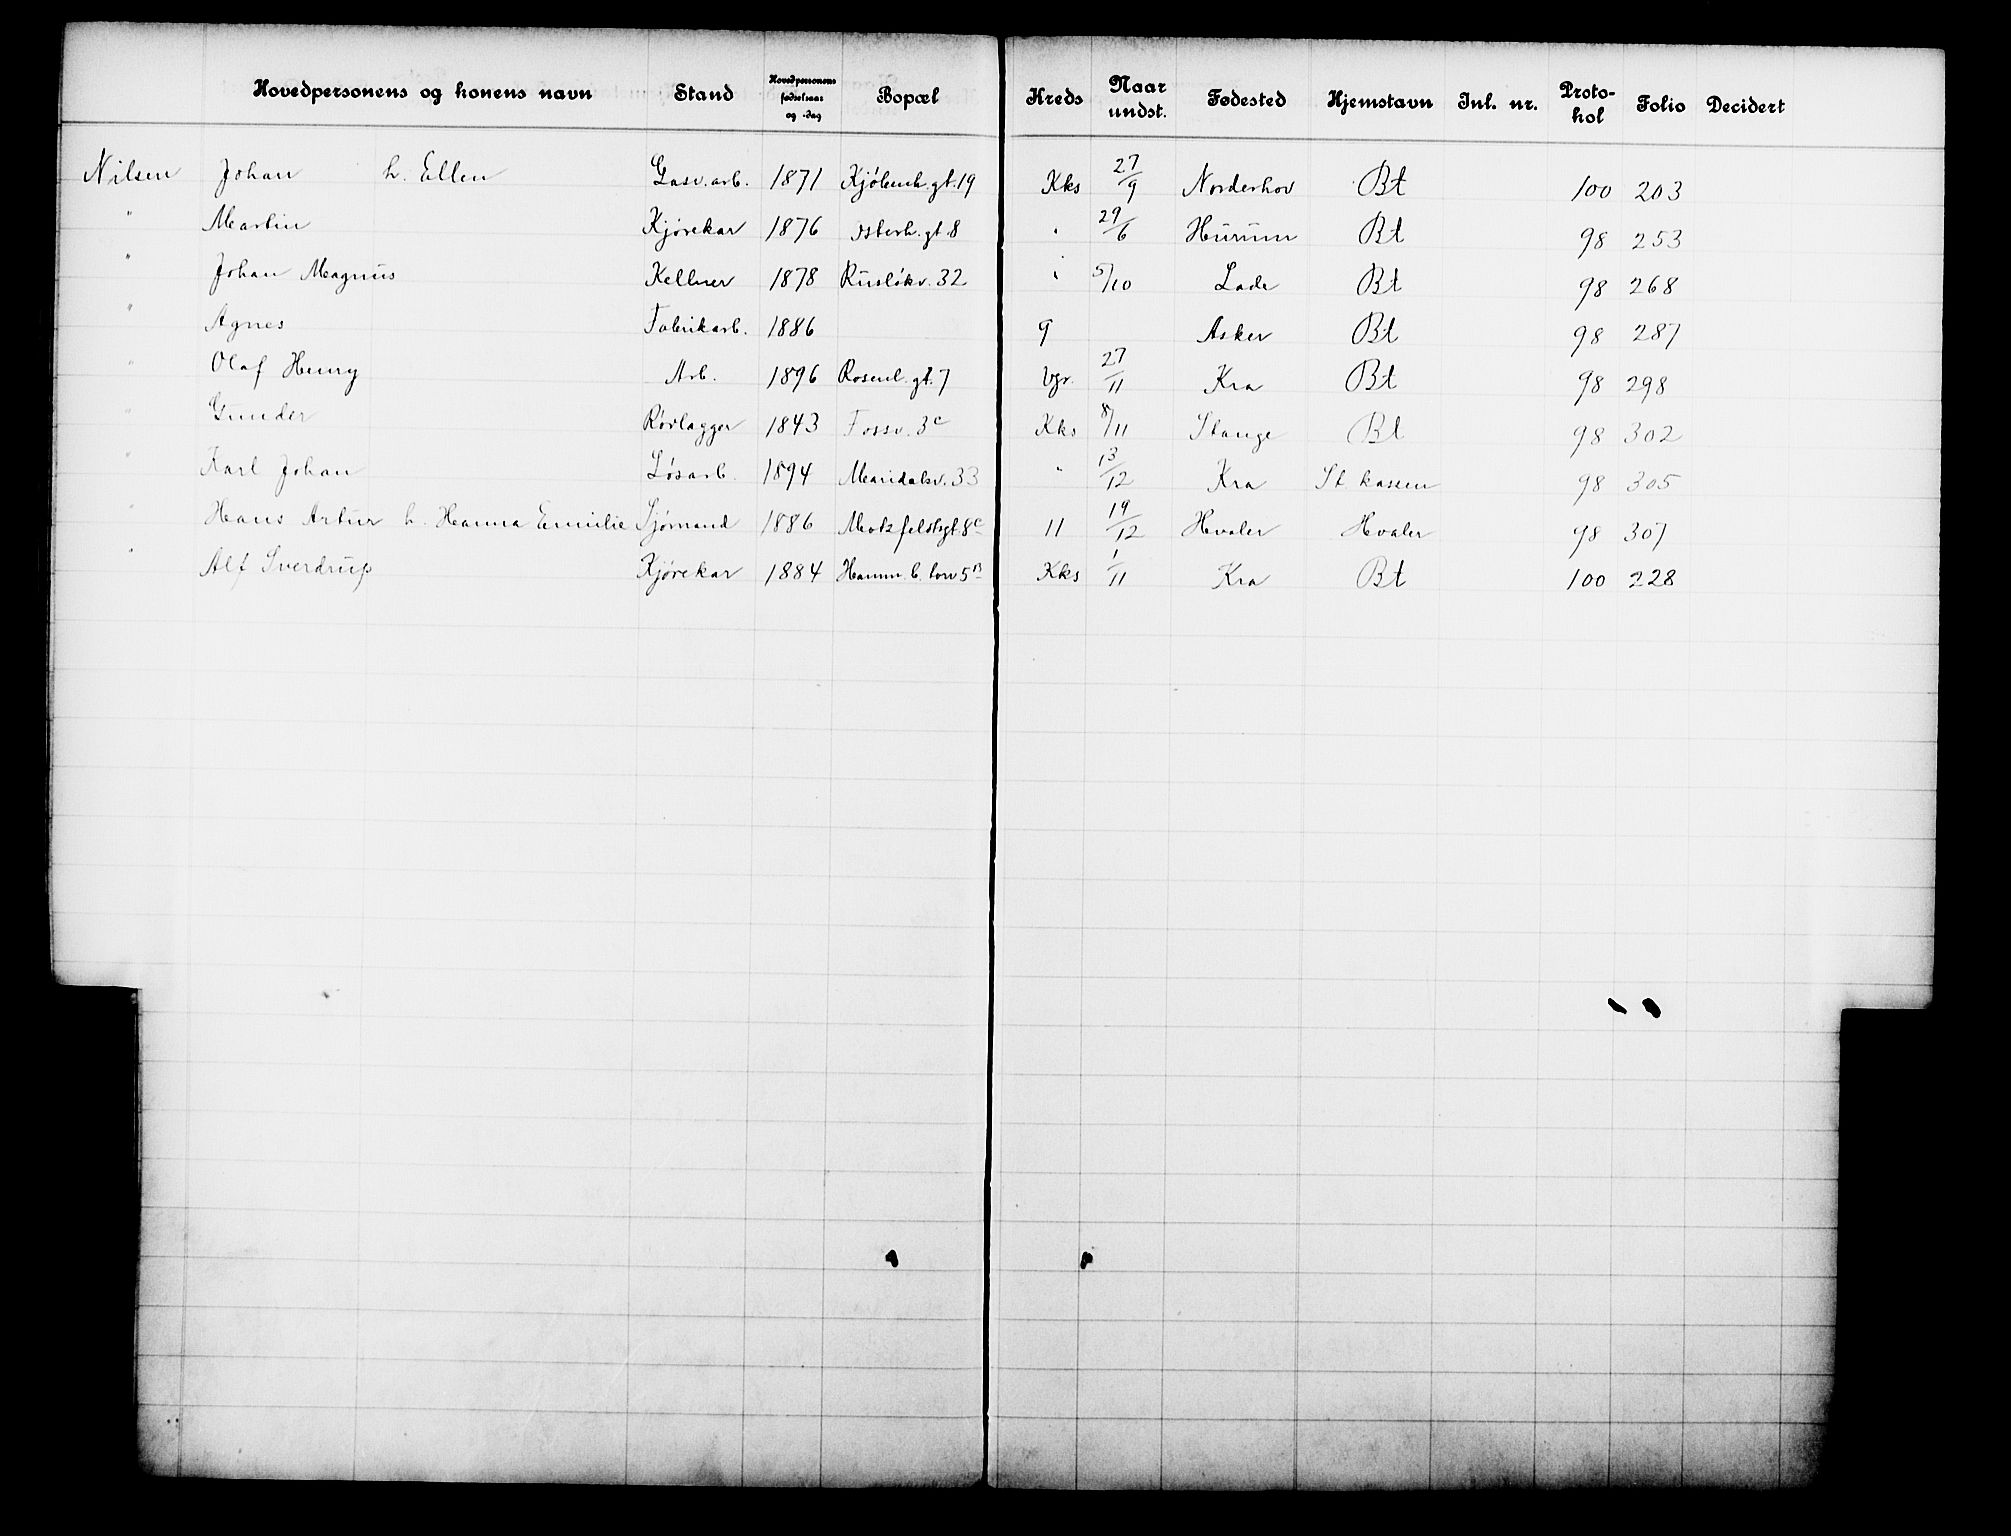 Hovedpersonens og konens navn Stand Hovedpersonens fødselsaar og -dag Bopæl Kreds Naar undst. Fødested Hjemstavn Inl. nr. Protokol Folio Decidert
Nilsen Johan h. Ellen Gasv.arb. 1871 Kjøbenh.gt.19 Kks 27/9 Norderhov Bt 100 203
" Martin Kjørekar 1876 Osterh.gt.8 " 29/6 Hurum Bt 98 253
" Johan Magnus Kellner 1878 Rusløkv.32 " 5/10 Lade Bt 98 268
" Agnes Fabrikarb. 1886 9 Asker Bt 98 287
" Olaf Henry Arb. 1896 Rosenb.gt.7 Vgr. 27/11 Kra Bt 98 298
" Gunder Rørlegger 1843 Fossv.3c Kks 8/11 Stange Bt 98 302
" Karl Johan Løsarb. 1894 Maridalsv.33 " 13/12 Kra St. kassen 98 305
" Hans Artur h. Hanna Emilie Sjømand 1886 Motzfeldtsgt.8c 11 19/12 Hvaler Hvaler 98 307
" Alf Sverdrup Kjørekar 1884 Hamm.b. torv 5B Kks 1/11 Kra Bt 100 228